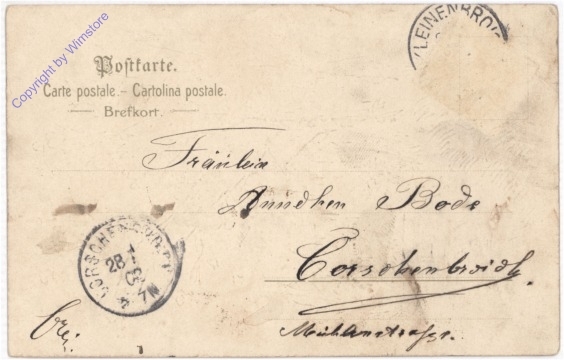 Copyright by Wimstore
KLEINENBROI
Postkarte.
Carte postale. – Cartolina postale.
Brefkort.
Fräulein
Ännchen Bode
Corschenbroich.
Mühlenstrasse.
CORSCHENBROICH
28 1
7-8N